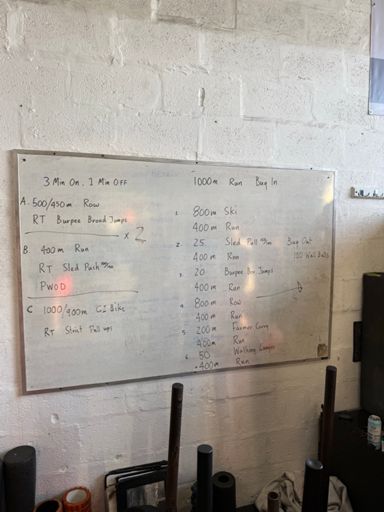 3 Min On . 1 Min OFF
A. 500/450m Row
RT Burpee Broad Jumps
x 2
B. 400m Run
RT Sled Push
PWOD
C 1000/900m C2 Bike
RT Strict Pull ups
1000m Run Buy In
1. 800m Ski
400m Run
2. 25 Sled Pull Buy Out
400m Run 100 Wall Balls
3. 20 Burpee Box Jumps
400m Run
4. 800m Row
400m Run
5. 200m Farmer Carry
400m Run
6. 50 Walking Lunges
400m Run